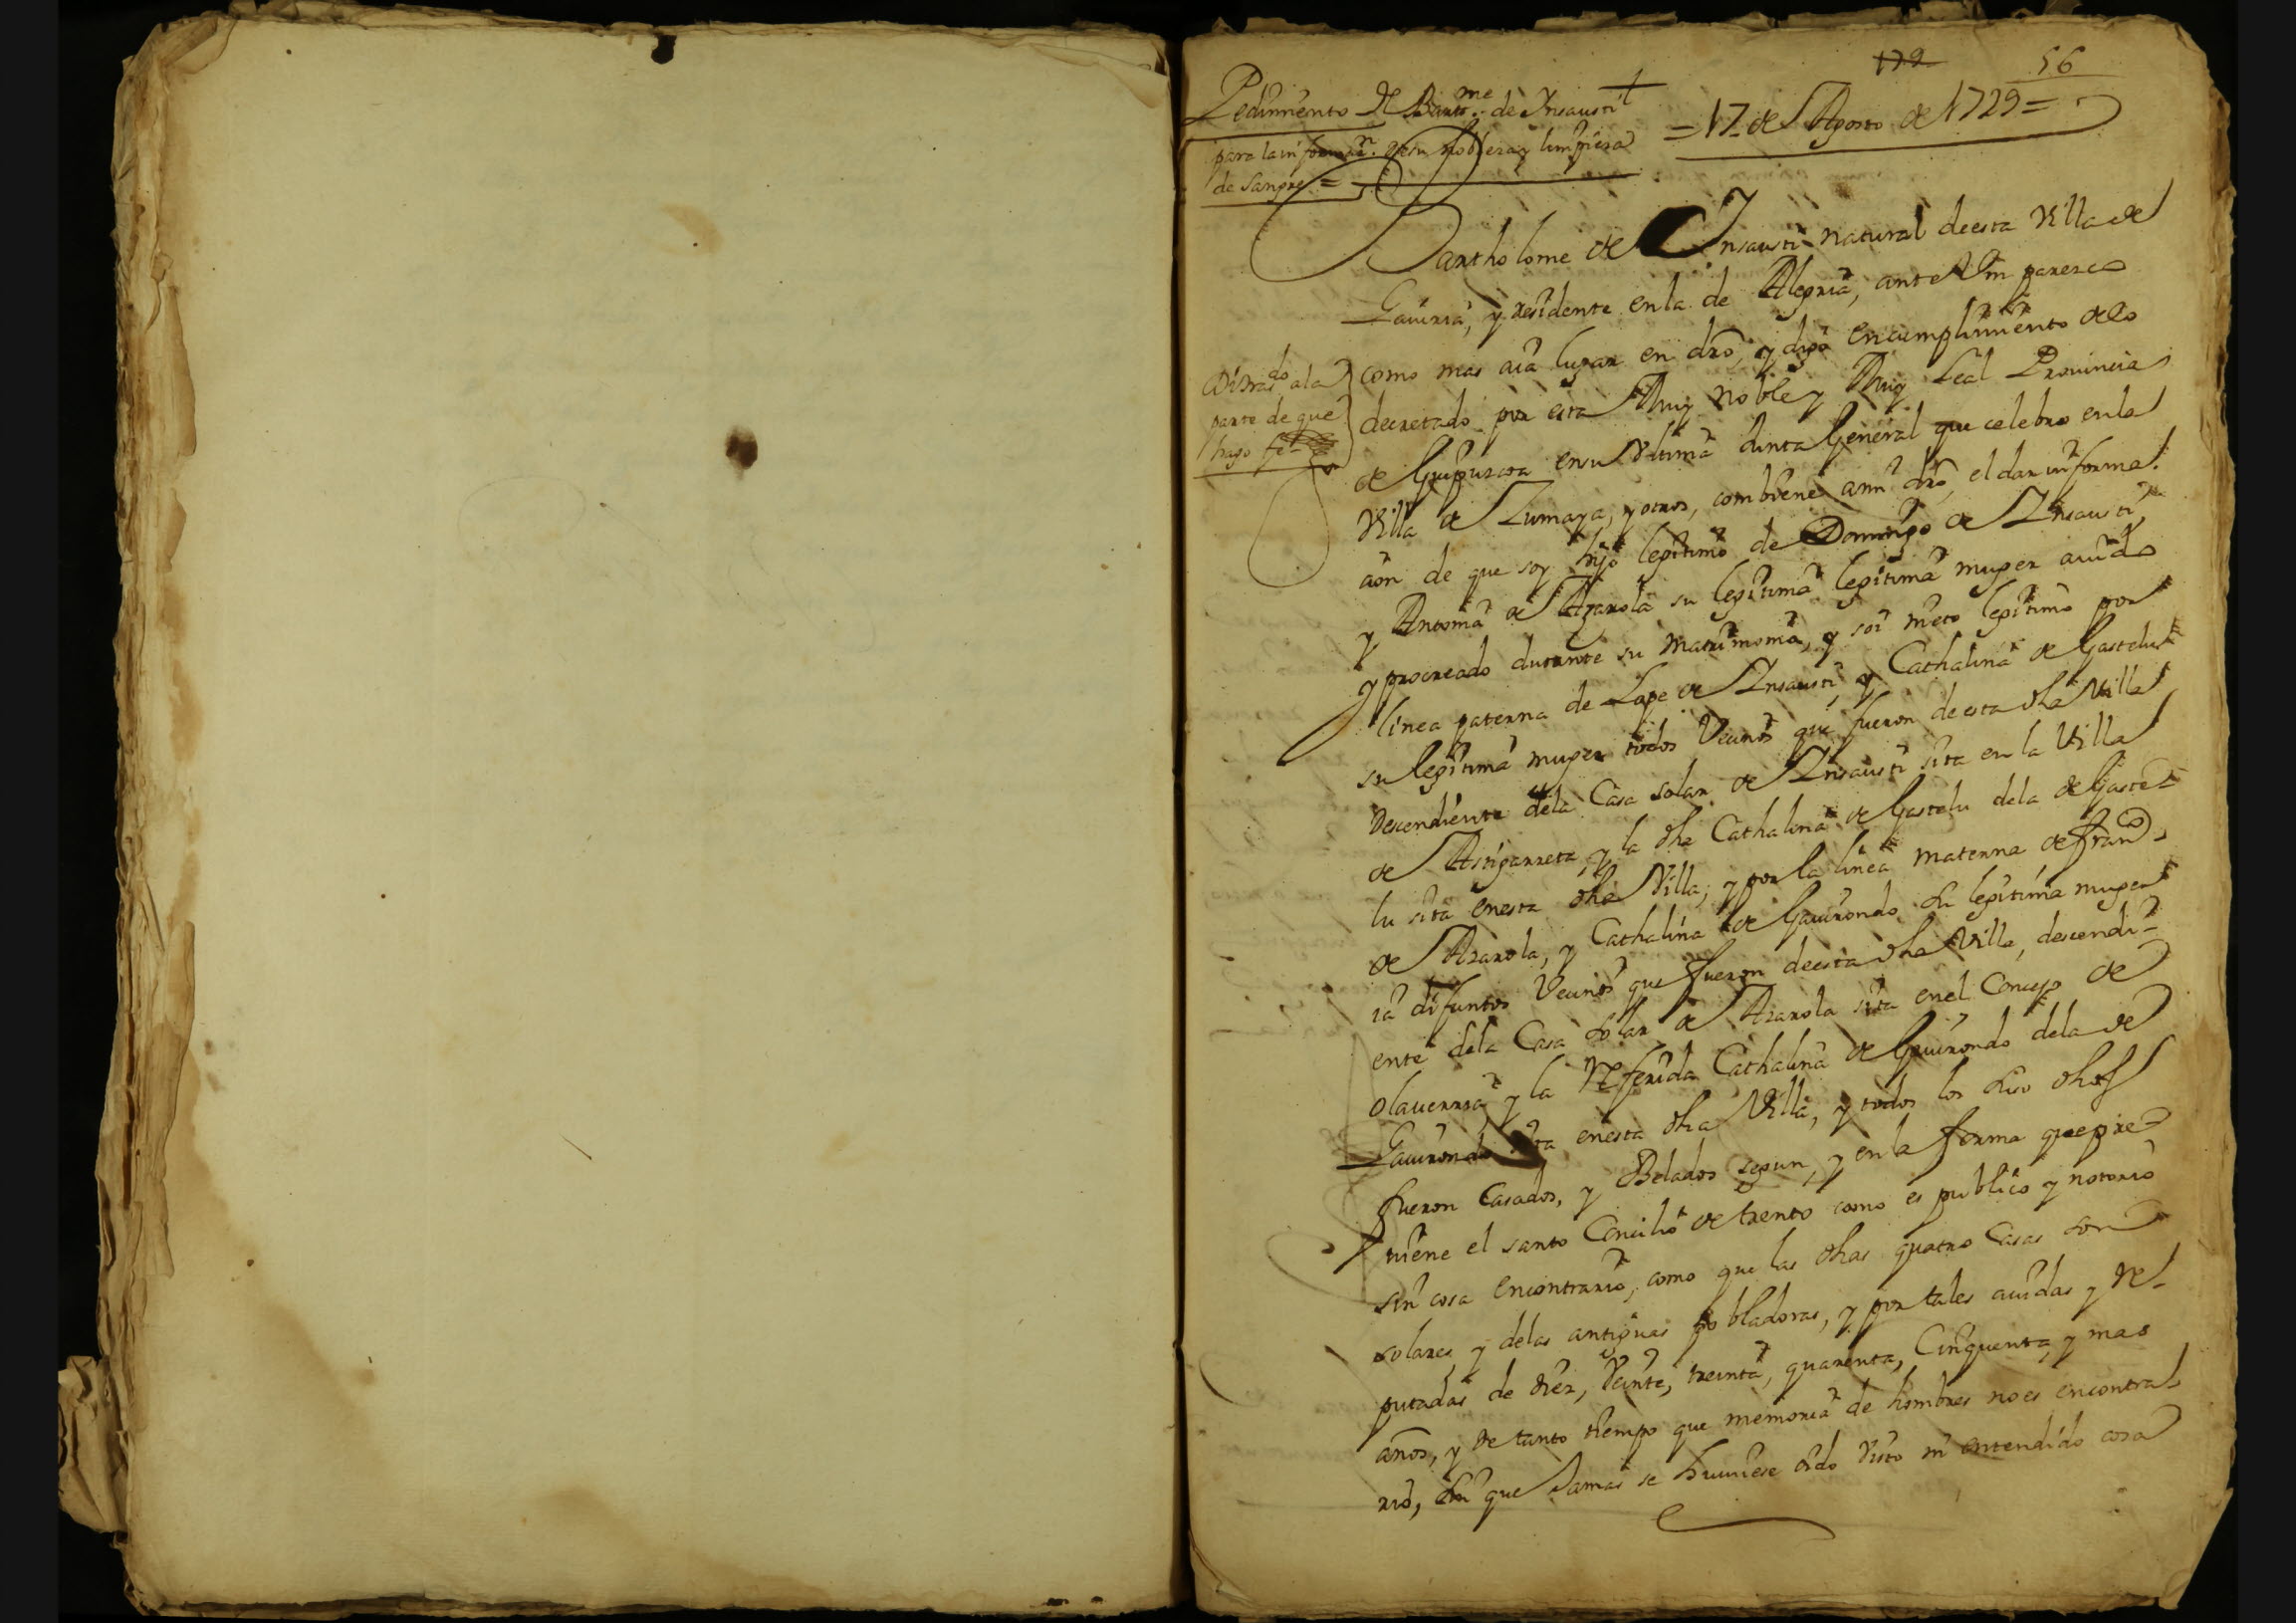 179 56
Pedimiento de Bartme. de Ynsausti
= 17 de Agosto de 1729 =
para la informazn. de su nobleza y limpieza
de Sangre =
Bartholome de Ynsausti natural de esta Villa de
Gauiria, y residente en la de Alegria, ante Vm parezco
como mas aia lugar en dro, y digo en cumplimiento de lo
decretado por esta Muy Noble y Muy Leal Prouincia
de Guipuzcoa en su Vltima Junta General que celebro en la
Villa de Zumaya, y otros, combiene a mi dro, el dar informa.
zon de que soy hijo legitimo de Domingo de Ynsausti,
y Antonia de Azarola su legitima legitima muger auido
y procreado durante su matrimonio, y soi nieto legitimo por
linea paterna de Lope de Ynsausti, y Cathalina de Gastelu
su legitima muger todos Vecinos que fueron de esta dha Villa
Descendiente de la Casa solar de Ynsausti sita en la Villa
de Astigarreta, y la dha Cathalina de Gastelu de la de Gaste-
lu sita en esta dha Villa; y por la linea materna de Franco.
de Azarola, y Cathalina de Gauirondo su legitima muger
ia difuntos Vecinos que fueron de esta dha Villa, descendi-
ente de la Casa solar de Azarola sita en el Concejo de
Olauerria y la Referida Cathalina de Gauirondo de la de
Gauirondo sita en esta dha Villa, y todos los suso dhos
fueron Casados, y Belados segun, y en la forma que pre-
uiene el santo Concilio de trento como es publico y notorio
sin cosa en contrario, como que las dhas quatro Casas son
solares, y de las antiguas pobladoras, y por tales auidas y Re-
putadas de diez, Veinte, treinta, quarenta, Cinquenta, y mas
años, y de tanto tiempo que memoria de hombres no es encontra-
rio, sin que Jamas se huuiese oido visto ni entendido cosa
di trasdo a la
parte de que
hago fe